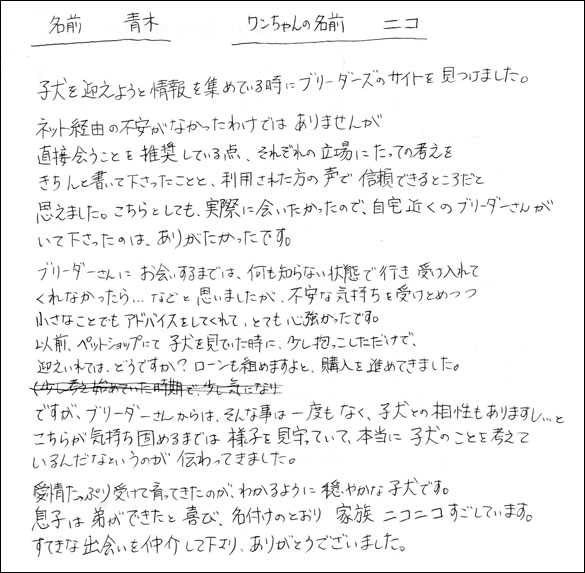 名前 青木 ワンちゃんの名前 ニコ
子犬を迎えようと情報を集めている時にブリーダーズのサイトを見つけました。
ネット経由の不安がなかったわけではありませんが
直接会うことを推奨している点、それぞれの立場にたっての考えを
きちんと書いて下さったことと、利用された方の声で信頼できるところだと
思えました。こちらとしても、実際に会いたかったので、自宅近くのブリーダーさんが
いて下さったのは、ありがたかったです。
ブリーダーさんにお会いするまでは、何も知らない状態で行き受け入れて
くれなかったら…などと思いましたが、不安な気持ちを受けとめつつ
小さなことでもアドバイスをしてくれて、とても心強かったです。
以前、ペットショップにて子犬を見ていた時に、少し抱っこしただけで、
迎えいれては、どうですか？ローンも組めますよと、購入を進めてきました。
(少し考え始めていた時期で、少し気になり
ですが、ブリーダーさんからは、そんな事は一度もなく、子犬との相性もありますし…と
こちらが気持ち固めるまでは様子を見守っていて、本当に子犬のことを考えて
いるんだなというのが伝わってきました。
愛情たっぷり受けて育ってきたのが、わかるように穏やかな子犬です。
息子は弟ができたと喜び、名付けのとおり家族ニコニコすごしています。
すてきな出会いを仲介して下さり、ありがとうございました。